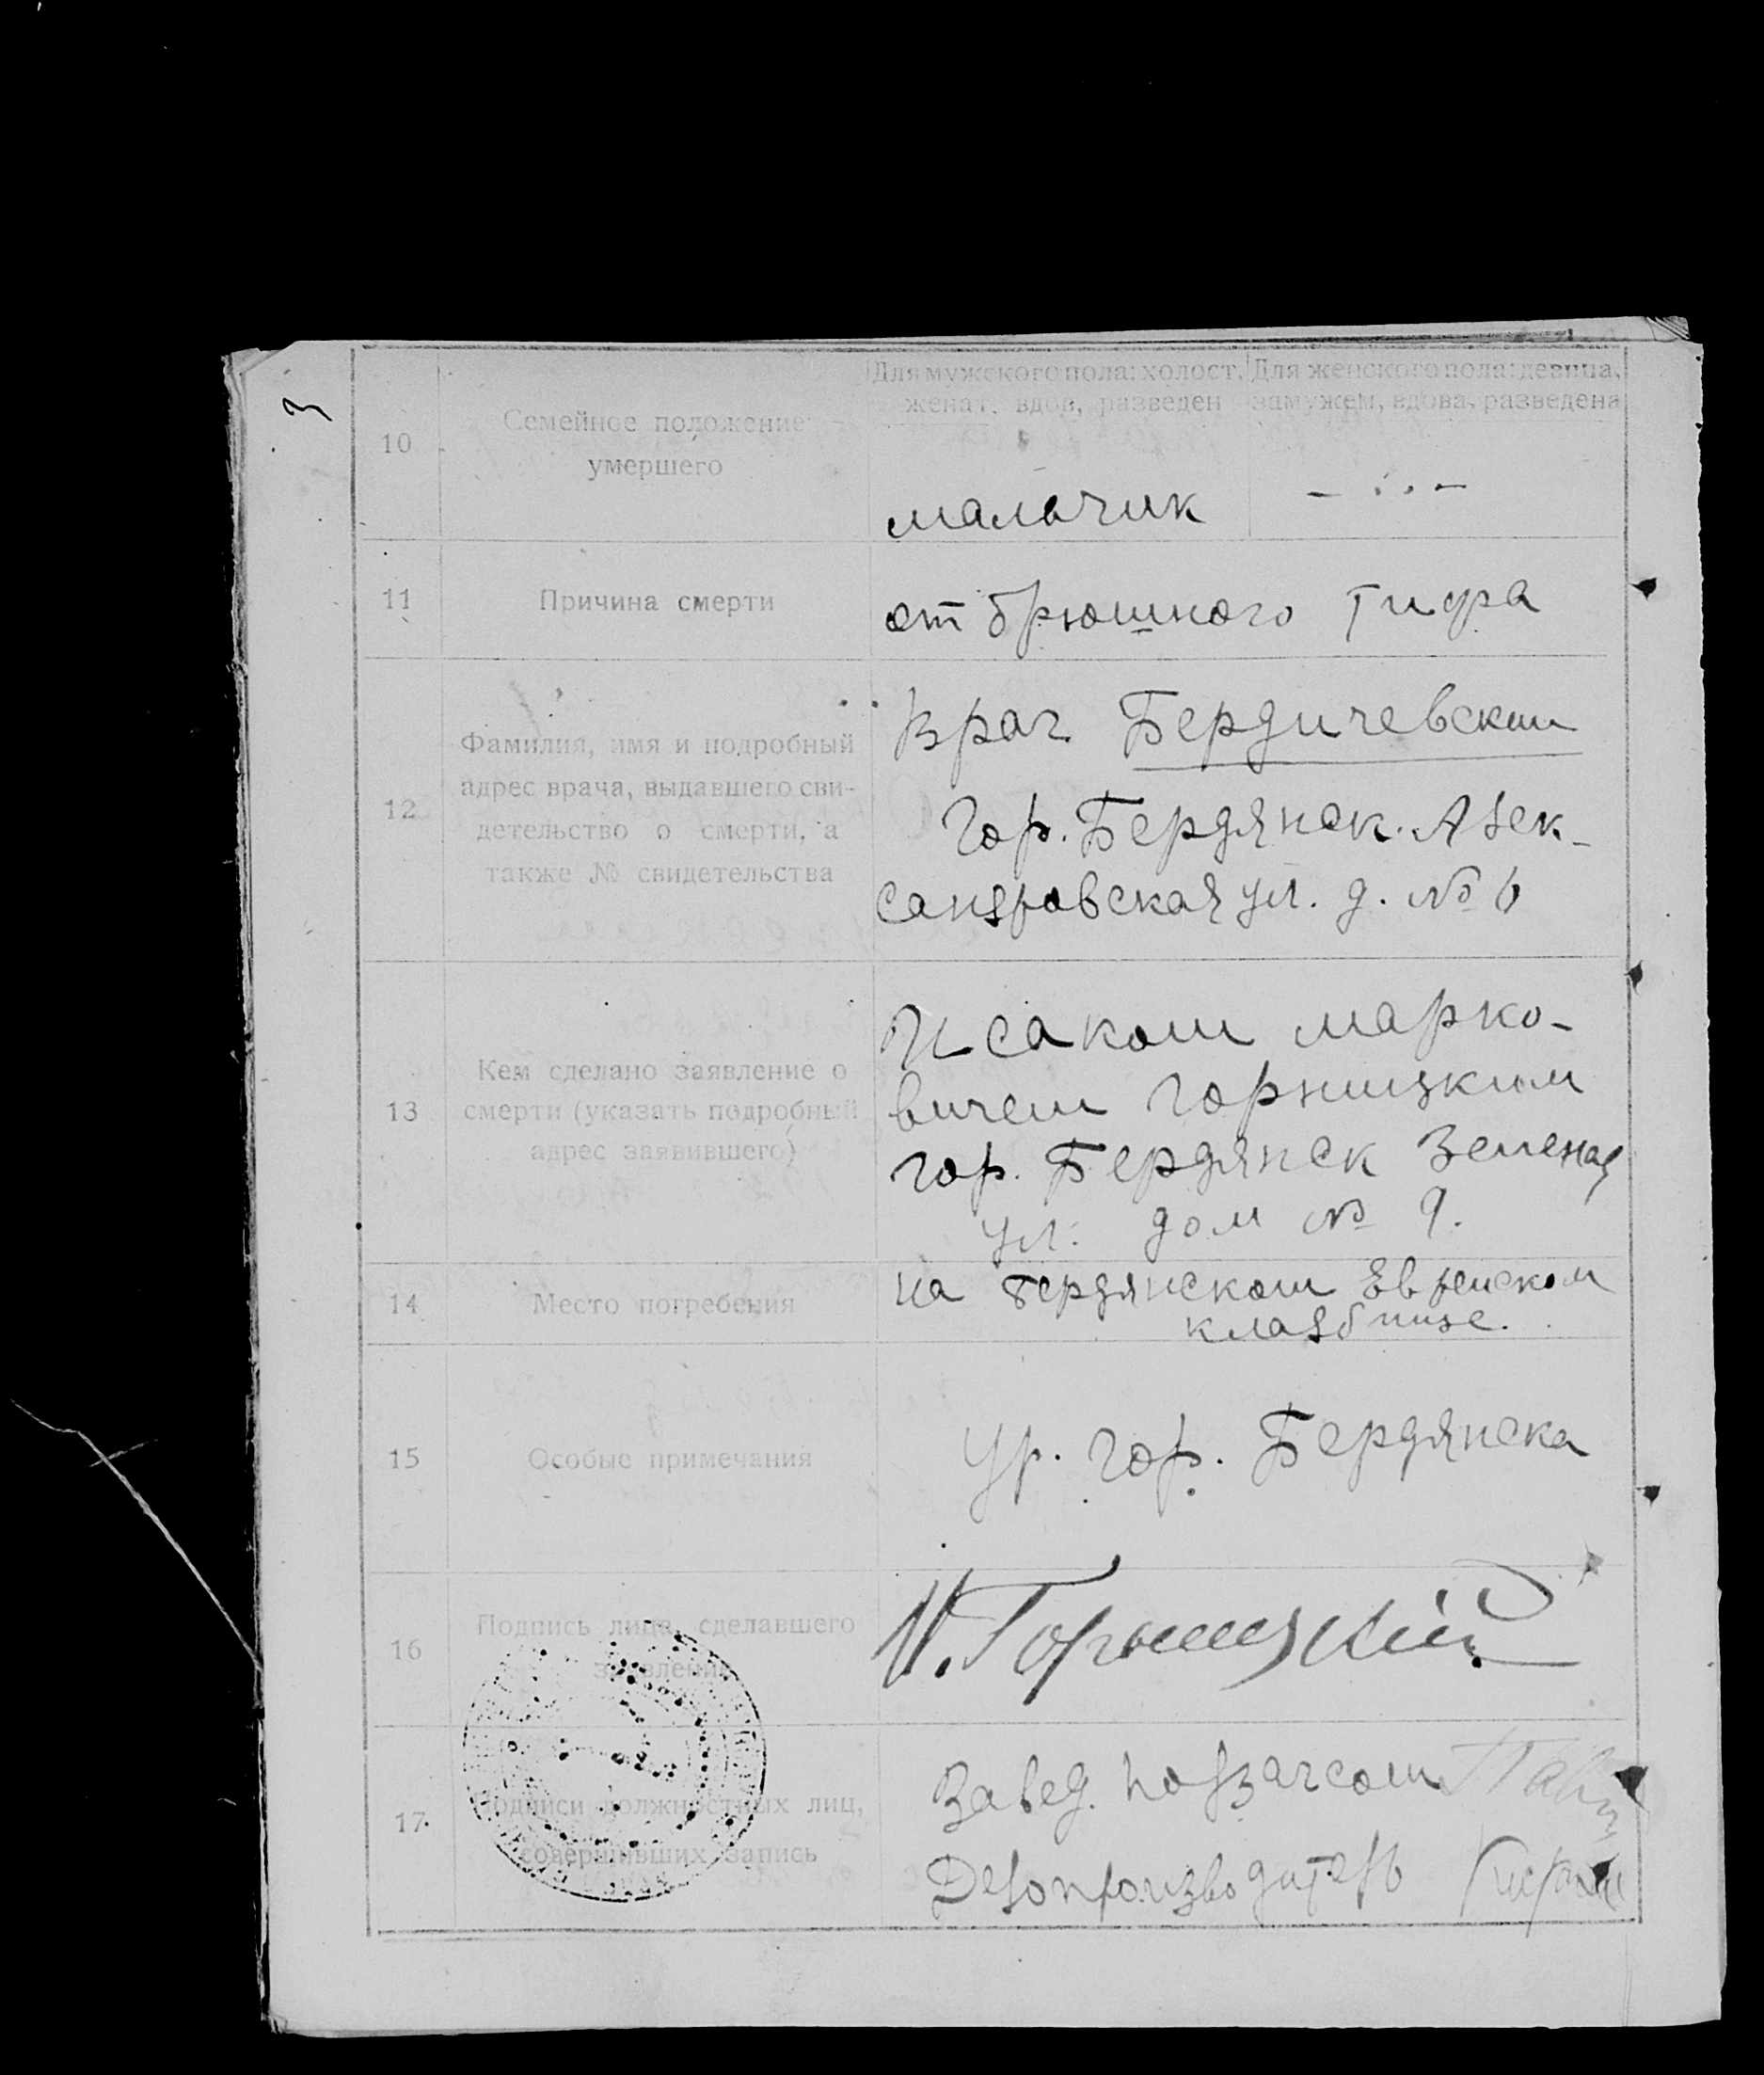 3
10
Семейное положение
умершего
Для мужского пола: холост,
женат, вдов, разведен
Для женского пола: девица,
замужем, вдова, разведена
мальчик
11
Причина смерти
от брюшного тифа
12
Фамилия, имя и подробный
адрес врача, выдавшего сви-
детельство о смерти, а
также № свидетельства
Врач Бердичевский
Гор. Бердянск. Алек-
сандровская ул. д. № 6
13
Кем сделано заявление о
смерти (указать подробный
адрес заявившего)
Исаком Марко-
вичем Горницким
гор. Бердянск Зеленая
ул. дом № 9.
14
Место погребения
на Бердянском Еврейском
кладбище.
15
Особые примечания
Ур. гор. Бердянска
16
Подпись лица, сделавшего
заявление
И. Горницкий
17.
Подписи должностных лиц,
совершивших запись
Завед.
Делопроизводитель